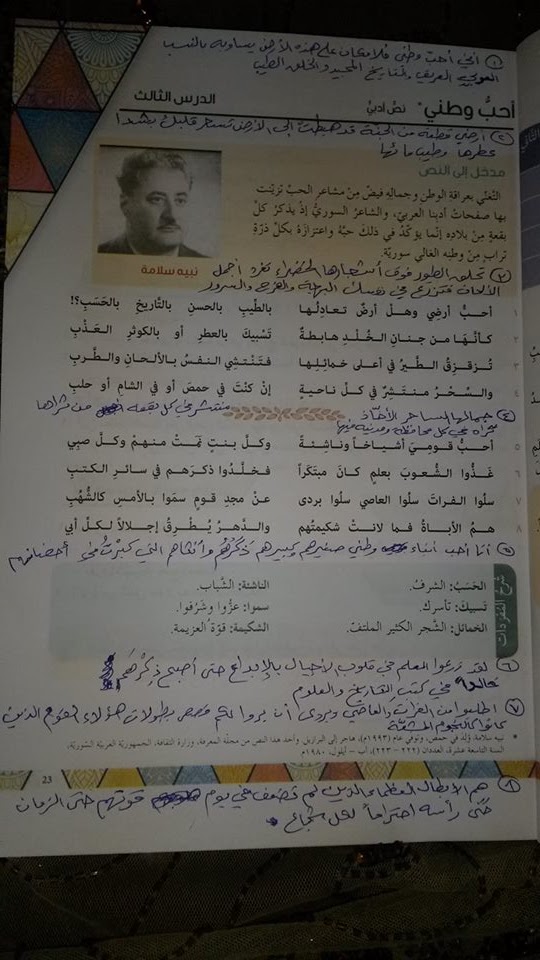 ① أني أحبّ وطني فلا مكان على هذه الأرض يساويه بالنسبا
العريق والتاريخ المجيد والخلق الطيب
الدرس الثالث
نصّ أدبيّ
أحبُّ وطني*
② أرضي قطعة من الجنة قد هبطت إلى الأرض تستاسر قلبك بشدا
عطرها وطيب مائها
مدخل إلى النص
التّغنّي بعراقة الوطن وجماله فيضٌ مِنْ مشاعر الحبّ تزيّنت
بها صفحاتُ أدبنا العربيّ، والشاعرُ السوريُّ إذ يذكرُ كلّ
بقعةٍ مِنْ بلاده إنّما يؤكّدُ في ذلكَ حبّهُ واعتزازهُ بكلّ ذرّةِ
ترابٍ مِنْ وطنِهِ الغالي سوريّة.
نبيه سلامة
③ تحلق الطيور فوق أشجارها الخضراء تغرد أجمل
الألحان فتزرع في نفسك البهجة والفرح والسرور
١ أحبُّ أرضي وهلْ أرضٌ تعادِلُـها بالطِّيبِ بالحسنِ بالتّاريخِ بالحَسَبِ؟!
٢ كأنّهـا من جنـانِ الخُـلْـدِ هـابطـةٌ تَسْبيكَ بالعطرِ أو بالكوثرِ العَـذْبِ
٣ تُـزقـزِقُ الطّـيرُ في أعلـى خمائِلِـها فتَـنْـتشِي النفسُ بالألحانِ والطَّربِ
٤ والسّحْرُ منتشِرٌ في كـلّ ناحـيةٍ إنْ كنْتَ في حمصَ أو في الشامِ أو حلبِ
④ جمالها الساحر الأخاذ منتشر في كل بقعة من ثراها
تراه في كل محافظة ومدينة فيها
٥ أحبُّ قومـي أشيـاخـاً ونـاشـئـةً وكلَّ بنـتٍ نَمَـتْ منهـمْ وكلَّ صبِي
٦ غَـذَّوا الشّعـوبَ بعلمٍ كـانَ مبتكَراً فخلَّـدوا ذكـرَهـم في سائـرِ الكتـبِ
٧ سلُوا الفراتَ سلُوا العاصي سلُوا بردى عنْ مجدِ قومٍ سمَوا بالأمسِ كالشُّهْبِ
٨ هـمُ الأبـاةُ فمـا لانـتْ شكيمتُهم والدّهـرُ يُـطْـرِقُ إجـلالاً لـكـلِّ أبي
⑤ أنا أحب أبناء وطني صغيرهم وكبيرهم ذكرهم وأنثاهم التي كبرت في أحضانهم
شرح المفردات
الحَسَبُ: الشرفُ. الناشئة: الشَّباب.
تَسبيكَ: تأسرك. سموا: عزُّوا وشَرُفوا.
الخمائل: الشّجر الكثير الملتفّ. الشكيمة: قوّة العزيمة.
⑥ لقد زرعوا العلم في قلوب الأجيال بالإبداع حتى أصبح ذكرهم
خالداً في كتب التاريخ والعلوم
⑦ اطلبوا من الفرات والعاصي وبردى أن يروا لكم قصص بطولات هؤلاء القوم الذين
كانوا كالنجوم المشعّة
* نبيه سلامة، وُلِدَ في حمص، وتوفي عام (١٩٩٣م)، هاجر إلى البرازيل. وأُخذ هذا النص من مجلّة المعرفة، وزارة الثقافة، الجمهوريّة العربيّة السّوريّة،
السنة التاسعة عشرة، العددان (٢٢٢ – ٢٢٣)، آب – أيلول، ١٩٨٠م.
23
⑧ هم الأبطال العظماء الذين لم تضعف في يوم قوتهم حتى الزمان
حنّى رأسه احتراماً لكل شجاع